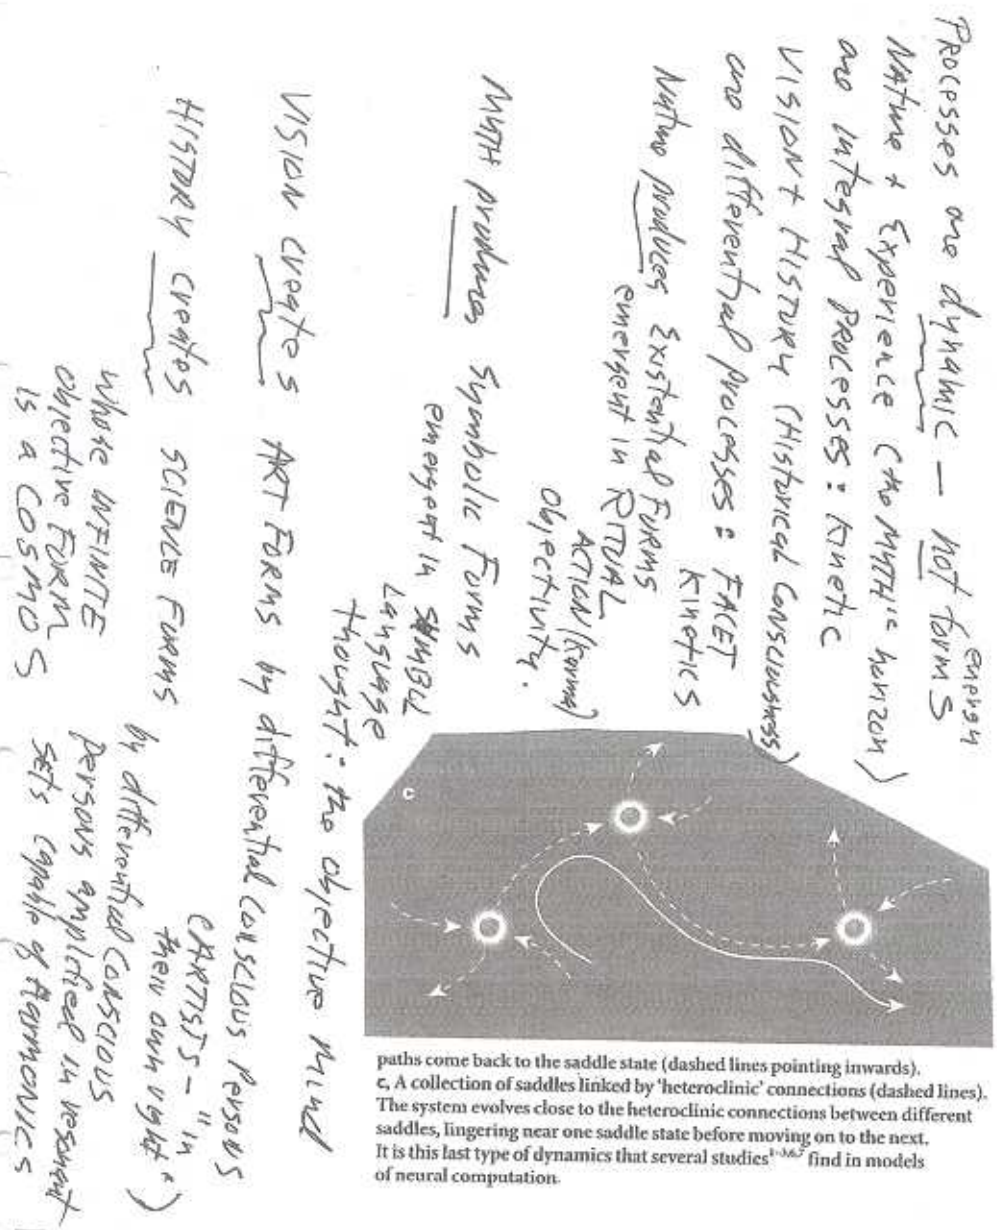 PROCESSES are dynamic — not forms
energy
NAture + Experience (the MYTHic horizon)
are integral PROCESSES : Kinetic
VISION + HISTORY (Historical Consciousness)
are differential processes : FACET
KINETICS
Nature produces Existential Forms
emergent in RITUAL
ACTION (Karma)
Objectivity.
MYTH produces Symbolic Forms
emergent in SYMBOL
LANGUAGE
thought : the objective mind
VISION creates ART FORMS by differential conscious Persons
(ARTISTS - "in
their own right")
HISTORY creates SCIENCE FORMS
by differential conscious
persons amplified in resonant
sets capable of HARMONICS
whose INFINITE
objective FORM
is a COSMOS
c
paths come back to the saddle state (dashed lines pointing inwards).
c, A collection of saddles linked by 'heteroclinic' connections (dashed lines).
The system evolves close to the heteroclinic connections between different
saddles, lingering near one saddle state before moving on to the next.
It is this last type of dynamics that several studies find in models
of neural computation.